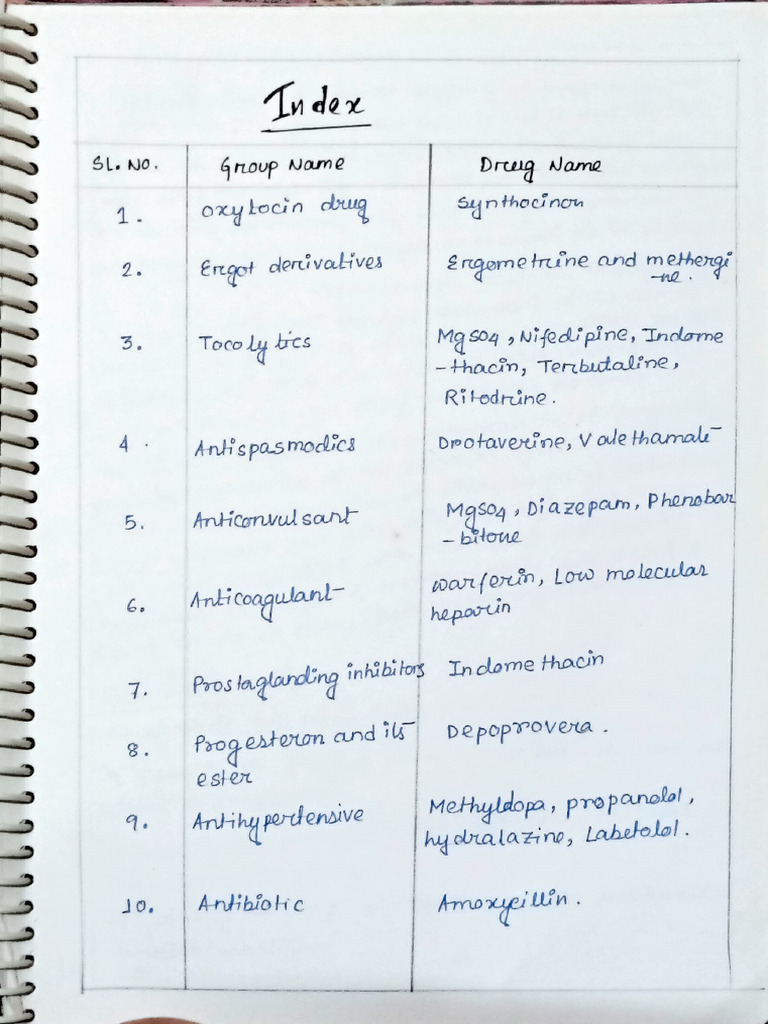 Index
SL. NO. Group Name Drug Name
1. Oxytocin drug Synthocinon
2. Ergot derivatives Ergometrine and methergi
-ne.
3. Tocolytics MgSO4, Nifedipine, Indome
-thacin, Terbutaline,
Ritodrine.
4. Antispasmodics Drotaverine, Valethamate
5. Anticonvulsant MgSO4, Diazepam, Phenobar
-bitone
6. Anticoagulant Warferin, Low molecular
heparin
7. Prostaglanding inhibitors Indomethacin
8. Progesteron and its Depoprovera.
ester
9. Antihypertensive Methyldopa, propanolol,
hydralazine, Labetolol.
10. Antibiotic Amoxycillin.